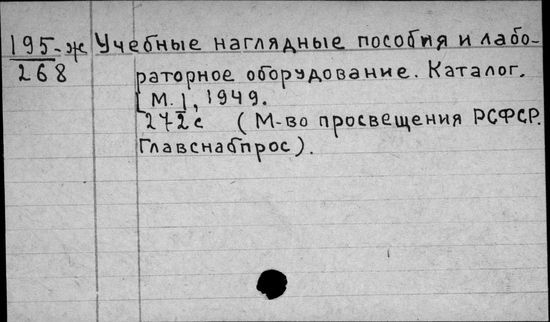 195-ж Учебные наглядные пособия и лабо-
268 раторное оборудование. Каталог.
[М.], 1949.
272с (М-во просвещения РСФСР.
Главснабпрос).